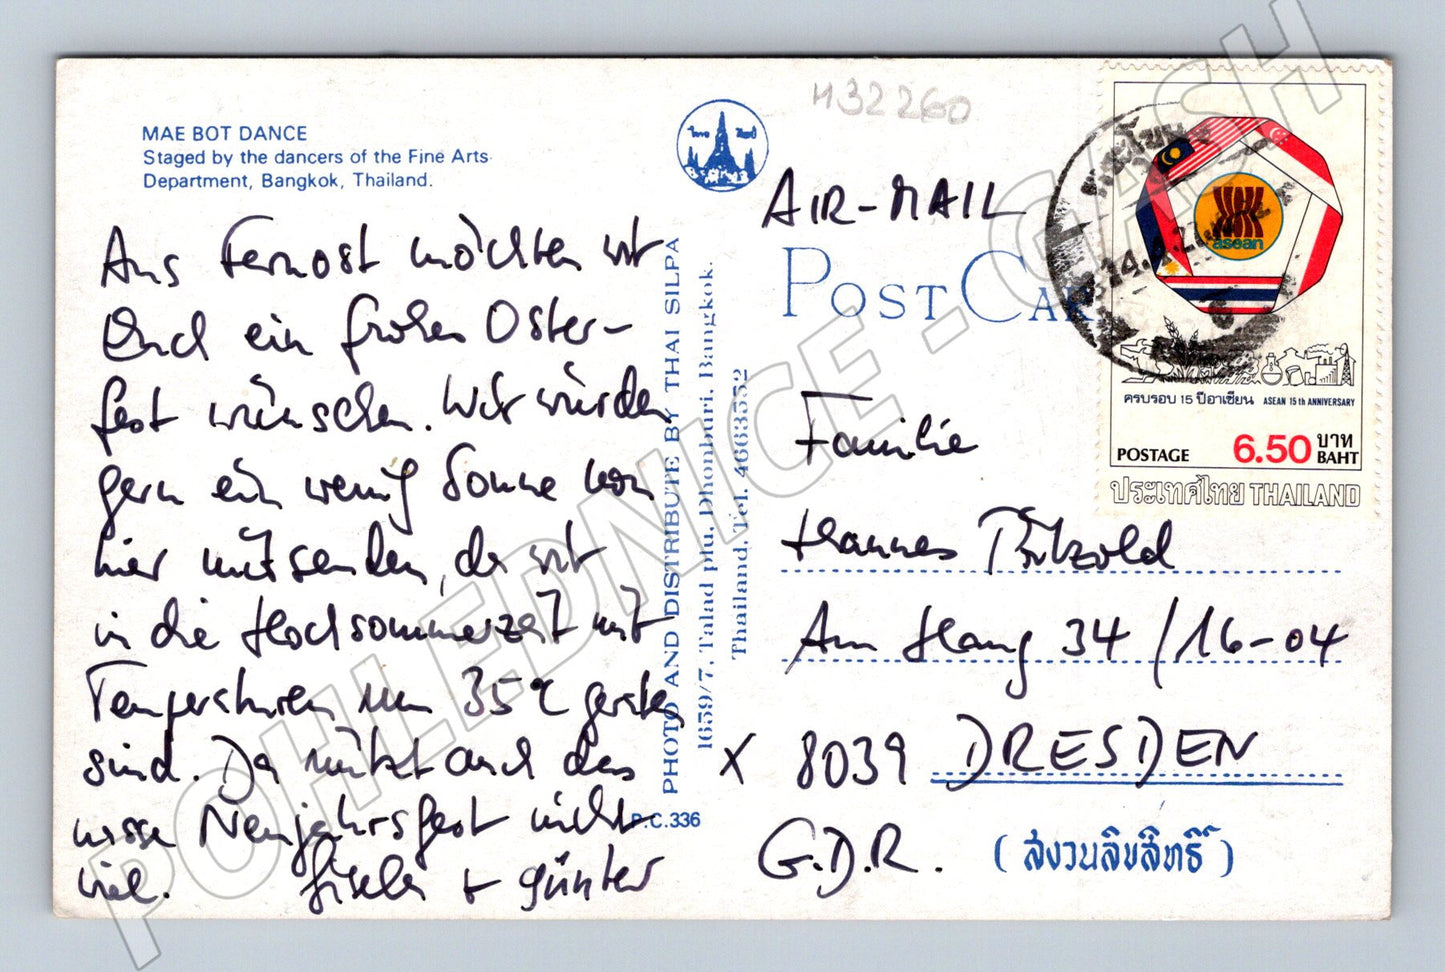 MAE BOT DANCE
Staged by the dancers of the Fine Arts
Department, Bangkok, Thailand.
Aus Fernost möchten wir
Euch ein frohes Oster-
fest wünschen. Wir würden
gern ein wenig Sonne von
hier mitsenden, da wir
in die Hochsommerzeit mit
Temperaturen um 35°C geraten
sind. Da nützt auch das
nasse Neujahrsfest nicht
viel. Gisela + Günter
PHOTO AND DISTRIBUTE BY THAI SILPA
1659/7, Talad plu, Dhonburi, Bangkok.
Thailand. Tel. 4663552
P.C.336
H32260
AIR-MAIL
POST CAR
Familie
Hannes
Am Hang 34 / 16-04
X 8039 DRESDEN
G.D.R.
(สงวนลิขสิทธิ์)
asean
ครบรอบ 15 ปีอาเซียน ASEAN 15th ANNIVERSARY
POSTAGE 6.50 บาท BAHT
ประเทศไทย THAILAND
POHLEDNICE - CASH